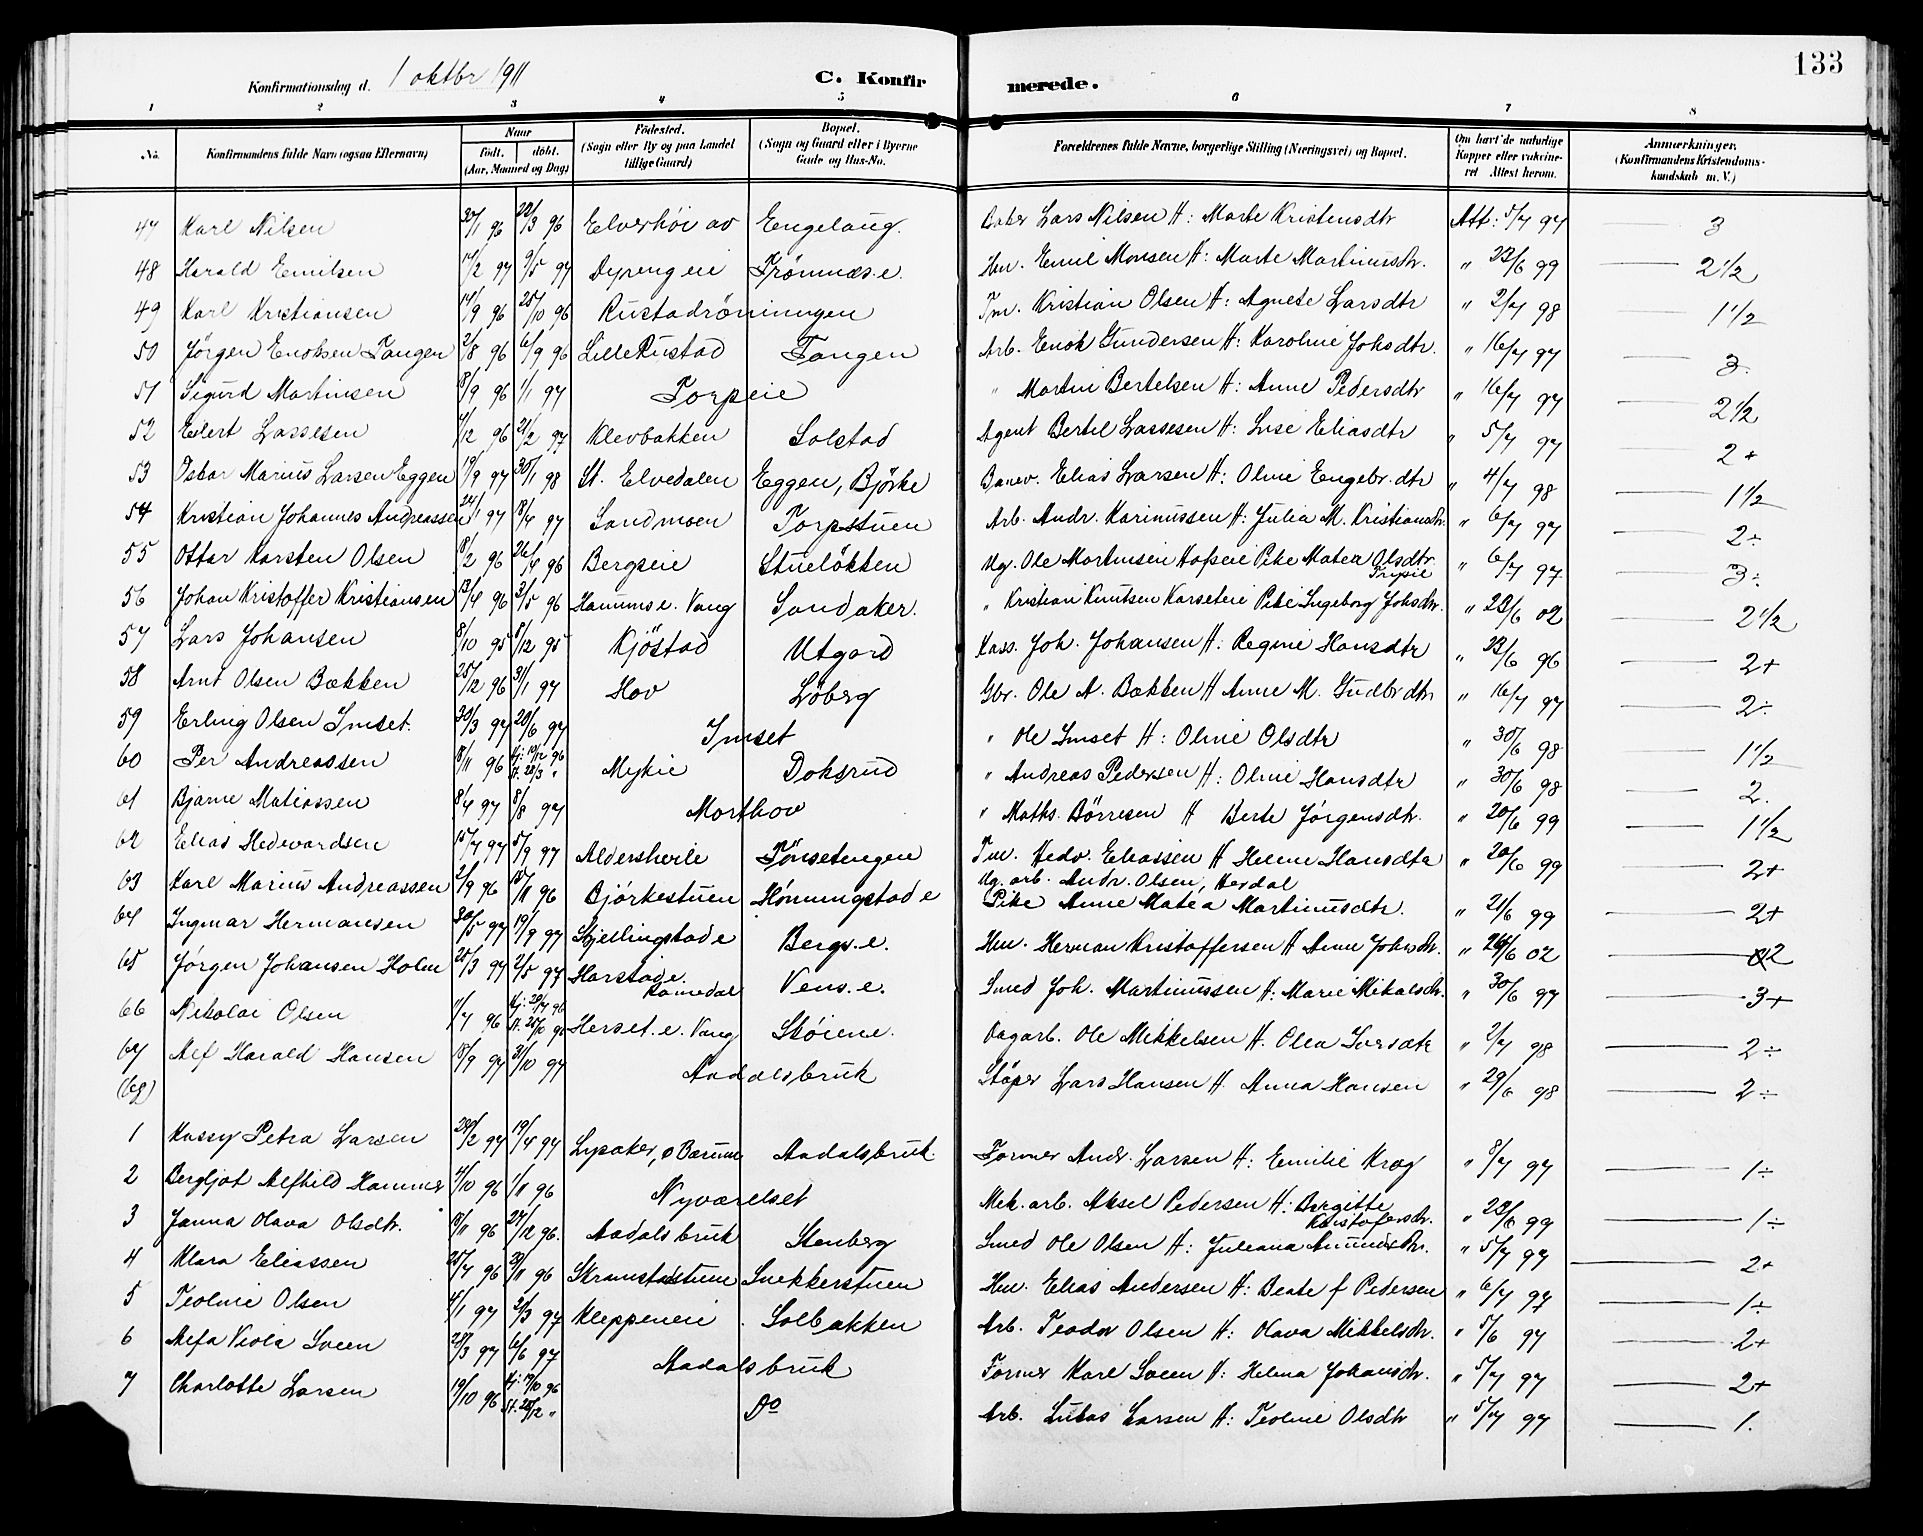 133
Konfirmationsdag d. 1 oktbr 1911 C. Konfirmerede.
1 2 3 4 5 6 7 8
No. Konfirmandens fulde Navn (ogsaa Efternavn) Naar födt. döbt. (Aar, Maaned og Dag) Födested. (Sogn eller By og paa Landet tillige Gaard) Bopæl. (Sogn og Gaard eller i Byerne Gade og Hus-No. Forældrenes fulde Navne, borgerlige Stilling (Næringsvei) og Bopæl. Om havt de naturlige Kopper eller vakcineret Attest herom. Anmærkninger. (Konfirmandens Kristendomskundskab m. V.)
47 Karl Nilsen 30/1 96 22/3 96 Elverhöi av Engelaug. Lars Nilsen H: Marte Kristensdtr Att: 5/7 97 3
48 Harald Emilsen 14/2 97 9/5 97 Dyreng eie Frömnæs.e. Hm. Emil Monsen H: Marte Martinusdtr. " 22/6 99 2 1/2
49 Karl Kristiansen 14/9 96 25/10 96 Rustadröningen Tm. Kristian Olsen H: Agnete Larsdtr " 2/7 98 1 1/2
50 Jörgen Enoksen Tangen 2/8 96 6/9 96 Lille Rustad Tangen Arb. Enok Gundersen H: Karoline Johsdtr. " 16/7 97 3
51 Sigurd Martinsen 8/9 96 1/1 97 Torpeie " Martin Bertelsen H: Anne Pedersdtr " 16/7 97 2 1/2
52 Edert Lassesen 4/12 96 21/2 97 Klevbakken Solstad Agent Bertel Lassesen H: Lise Eliasdtr " 5/7 97 2+
53 Oskar Marius Larsen Eggen 19/9 97 30/1 98 St. Elvedalen Eggen, Björke Banev. Elias Larsen H: Oline Engebr.dtr " 4/7 98 1 1/2
54 Kristian Johannes Andreassen 24/1 97 18/4 97 Sandmoen Torpstuen Arb. Andr. Karinussen H: Julia M. Kristiansdtr. " 6/7 97 2÷
55 Ottar Karsten Olsen 8/2 96 26/4 96 Bergseie Stuelökken Ug. Ole Martinsen Hofseie Pike Matea Olsdtr Trysil " 6/7 97 3÷
56 Johan Kristoffer Kristiansen 13/4 96 3/5 96 Hammse. Vang Sandaker. " Kristian Knutsen Karseteie Pike Ingeborg Johsdtr. " 22/6 02 2 1/2
57 Lars Johansen 8/10 95 8/12 95 Kjöstad Utgard Kass. Joh. Johansen H: Regine Hansdtr " 23/6 96 2+
58 Arnt Olsen Bækken 25/12 96 31/1 97 Hov Löberg Gbr. Ole A. Bækken H Anne M. Gudbrdtr " 16/7 97 2÷
59 Erling Olsen Imset. 30/3 97 20/6 97 Imset " Ole Imset H: Oline Olsdtr " 30/6 98 1 1/2
60 Per Andreassen 18/11 96 Hj: 19/12 96 St. 28/3 " Myhre Doksrud " Andreas Pedersen H: Oline Hansdtr " 30/6 98 2.
61 Bjarne Matiassen 8/4 97 8/8 97 Morthov " Maths. Börresen H Berte Jörgensdtr. " 20/6 99 1 1/2
62 Elias Hedevardsen 15/7 97 5/9 97 Alderskeile Fönsetengen Tm. Hedv. Eliassen H Helene Hansdtr " 20/6 99 2+
63 Karl Marius Andreassen 2/9 96 15/11 96 Björkestuen Hönningstad e Ug. arb. Andr. Olsen, Herdal Pike Anne Matéa Martinusdtr. " 21/6 99 2+
64 Ingmar Hermansen 20/5 97 19/9 97 Skjellingstad e Bergs.e. Hm. Herman Kristoffersen H Anne Johsdtr. " 24/6 02 2
65 Jörgen Johansen Holm 25/3 97 2/5 97 Harstad e. Romedal Vens.e. Smed Joh. Martinussen H: Marie Mikalsdtr. " 30/6 97 3+
66 Nikolai Olsen 11/7 96 Hj: 20/7 96 St. 25/10 96 Herset.e. Vang Sköiene. Dagarb. Ole Mikkelsen H. Olea Iversdtr " 2/7 98 2÷
67 Alf Harald Hansen 18/9 97 31/10 97 Aadalsbruk Stöper Lars Hansen H. Anna Hansen " 29/6 98 2÷
(68)
1 Kassy Petra Larsen 28/2 97 19/4 97 Lysaker, ö Bærum Aadalsbruk. Former Andr. Larsen H: Emilie Krog " 8/7 97 1÷
2 Bergljot Alfhild Hammer 4/10 96 1/11 96 Nyværelset Mek. arb. Aksel Pedersen H: Bergitte Kristofersdtr. " 23/6 99 1÷
3 Janna Olava Olsdtr. 18/11 96 27/12 96. Aadalsbruk Stenberg Smed Ole Olsen H: Juliana Amundsdtr. " 5/7 97 2+
4 Klara Eliassen 25/7 96 29/11 96 Skramstadstuen Snekkerstuen Hm. Elias Andersen H: Beate f Pedersen " 6/7 97 1÷
5 Teoline Olsen 4/1 97 21/3 97 Kleppeneie Solbakken Arb. Teodor Olsen H: Olava Mikkelsdtr. " 5/6 97 2+
6 Alfa Viola Sveen 28/3 97 6/6 97 Aadalsbruk Former Karl Sveen H: Helena Johansdtr. " 5/7 97 2+
7 Charlotte Larsen 19/10 96 Hj: 19/10 96 St. 28/12 " Do Arb. Lukas Larsen H: Teoline Olsdtr " 5/7 97 1.